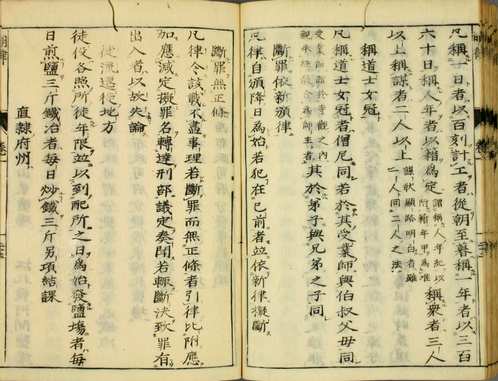 凡稱一日者以百刻計工者從朝至暮稱一年者以三百
六十日稱人年者以籍為定謂稱人年紀以附籍年甲為准稱衆者三人
以上稱謀者二人以上謀狀顯跡明白者雖一人同二人之法
稱道士女冠
凡稱道士女冠者僧尼同若於其受業師與伯叔父母同
其於弟子與兄弟之子同
斷罪依新頒律
凡律自頒降日為始若犯在已前者並依新律擬斷
斷罪無正條
凡律令該載不盡事理若斷罪而無正條者引律比附應
加應減定擬罪名轉達刑部議定奏聞若輒斷決致罪有
出入者以故失論
徒流遷徙地方
徒役各照所徒年限並以到配所之日為始發鹽場者每
日煎鹽三斤鐵冶者每日炒鐵三斤另項結課
直隸府州